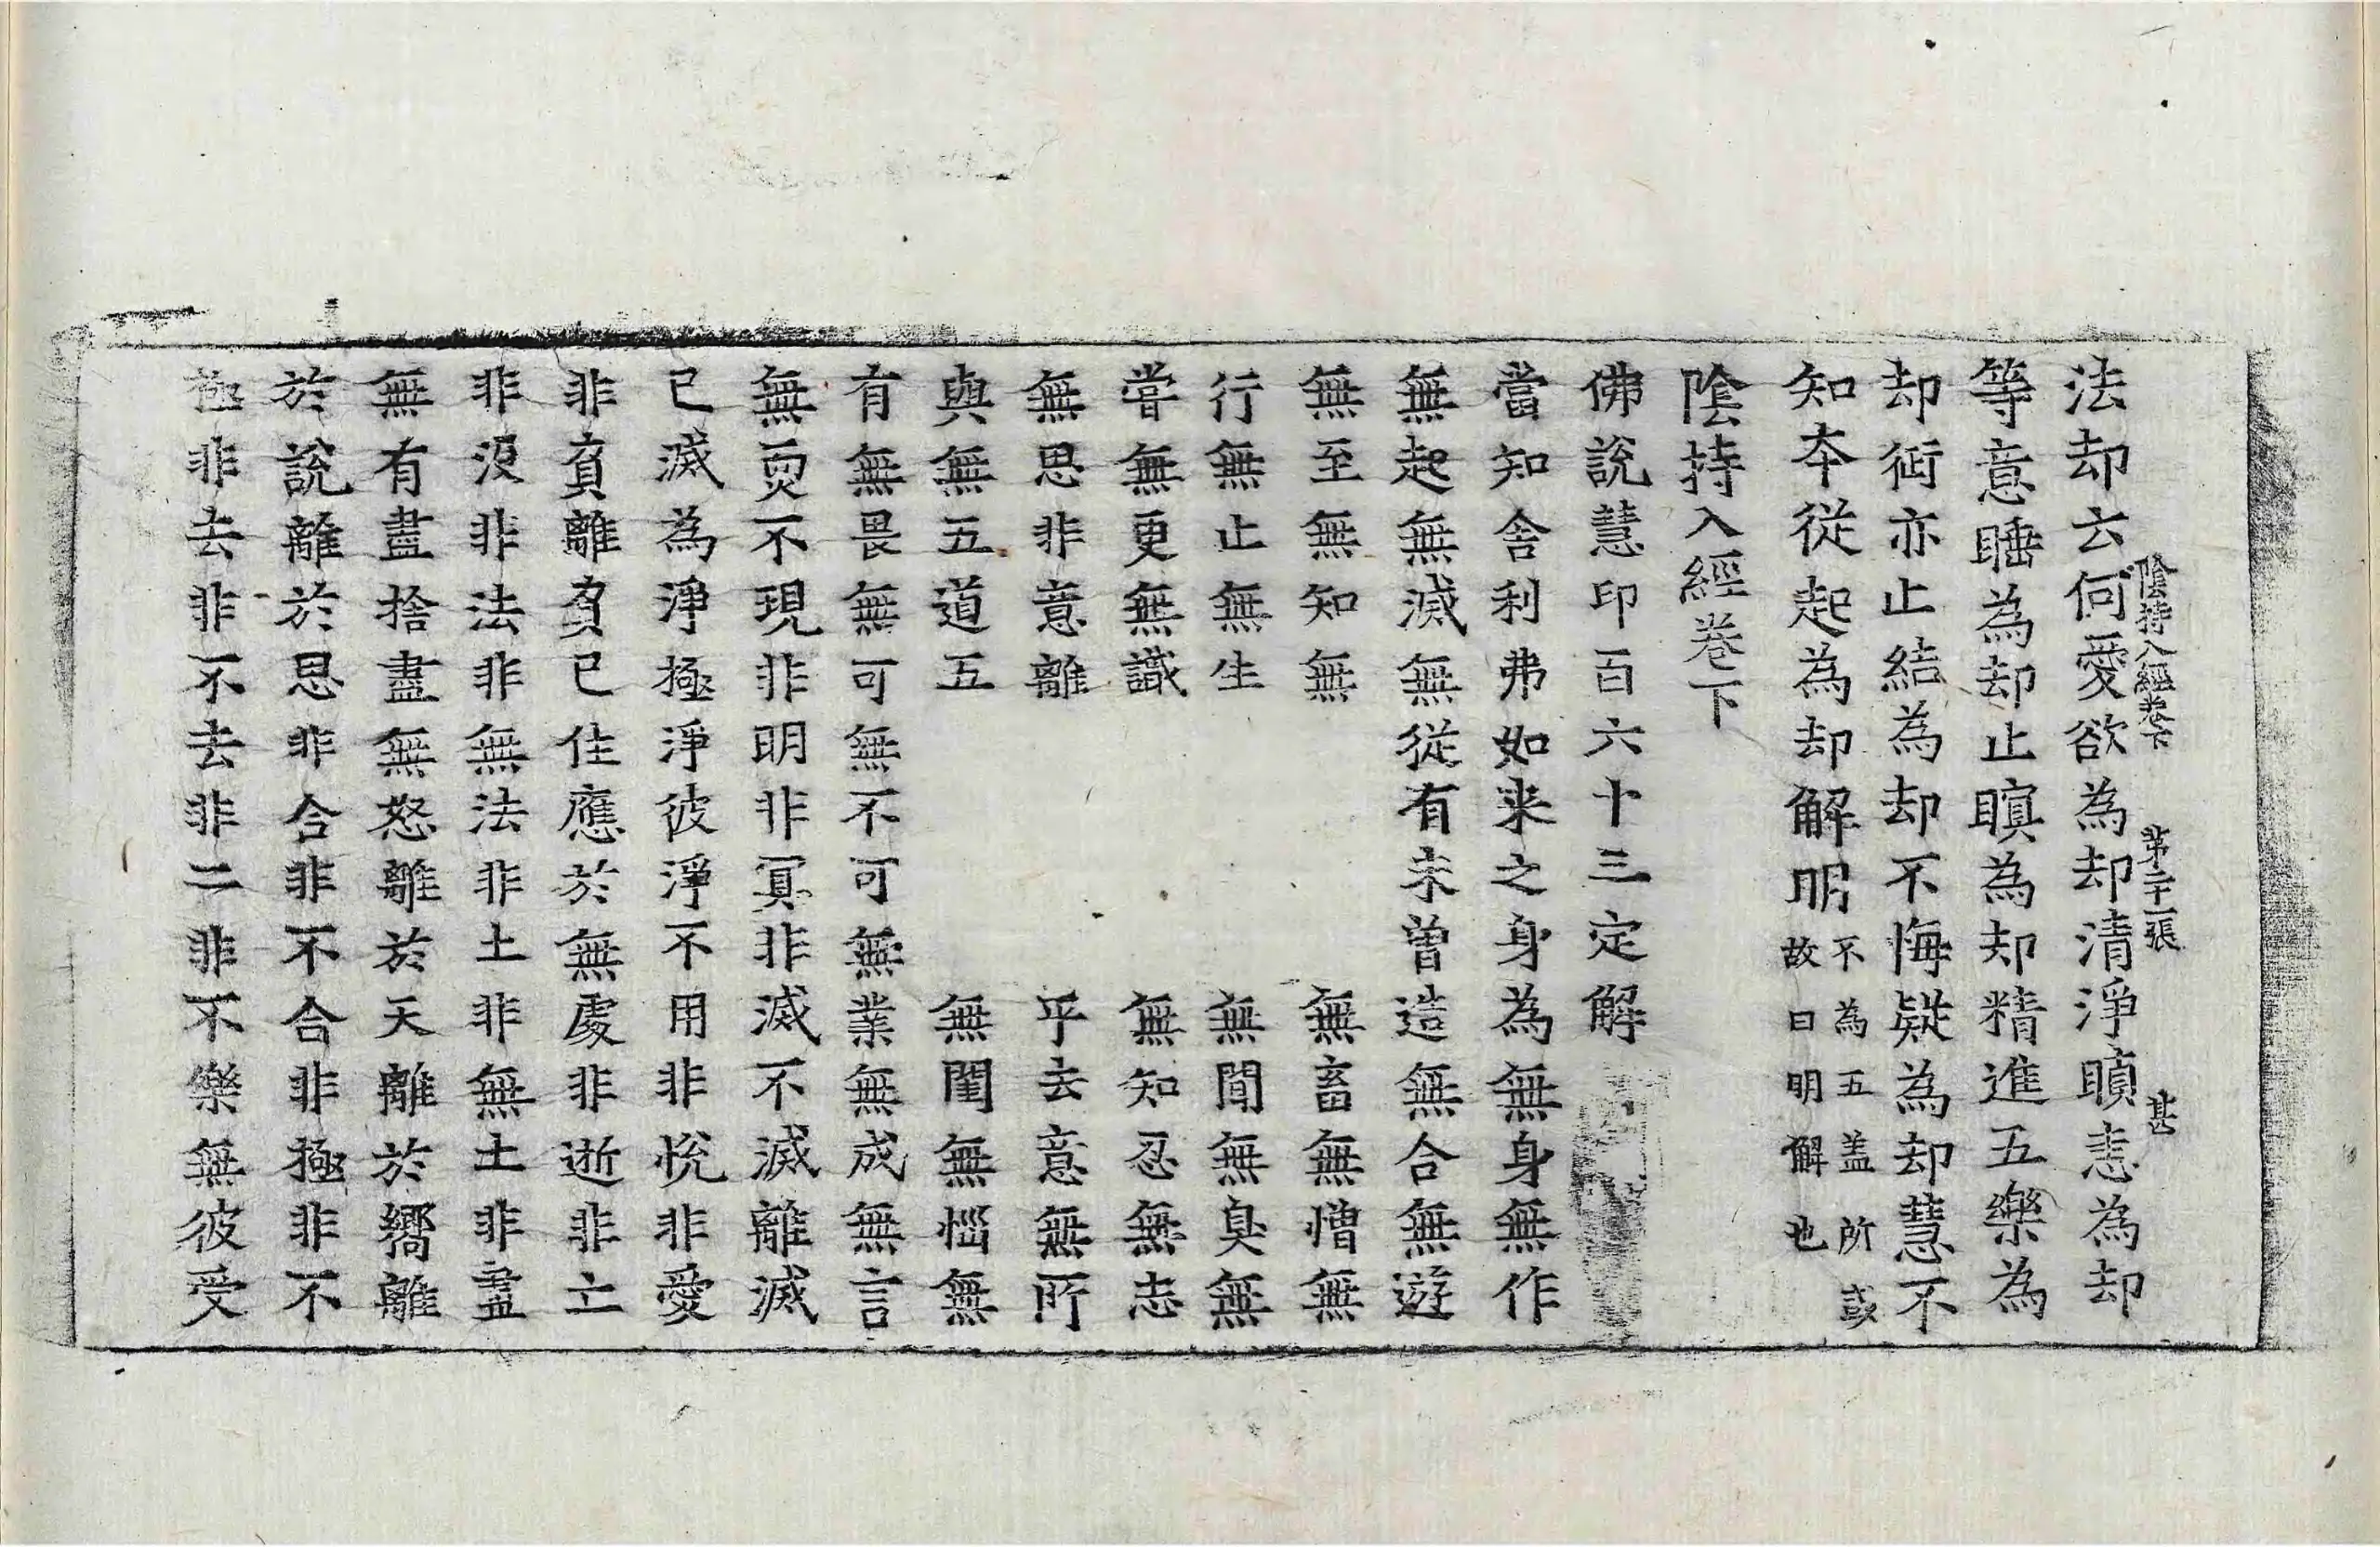 陰持入經卷下 第二十一張 甚
法却云何愛欲為却清淨瞋恚為却
等意睡為却止瞑為却精進五樂為
却術亦止結為却不悔疑為却慧不
知夲從起為却解明不為五盖所或故曰明解也
陰持入經卷下
佛說慧印百六十三定解
當知舍利弗如来之身為無身無作
無起無滅無從有未曾造無合無遊
無至無知無 無畜無憎無
行無止無生 無聞無臭無
嘗無更無識 無知忍無志
無思非意離 乎去意無所
與無五道五 無閨無惱無
有無畏無可無不可無業無成無言
無𤋱不現非明非冥非滅不滅離滅
已滅為淨極淨彼淨不用非恱非愛
非貪離貪已住應於無處非逝非亡
非沒非法非無法非土非無土非盡
無有盡捨盡無怒離於天離於嚮離
於說離於思非合非不合非極非不
極非去非不去非二非不樂無彼受